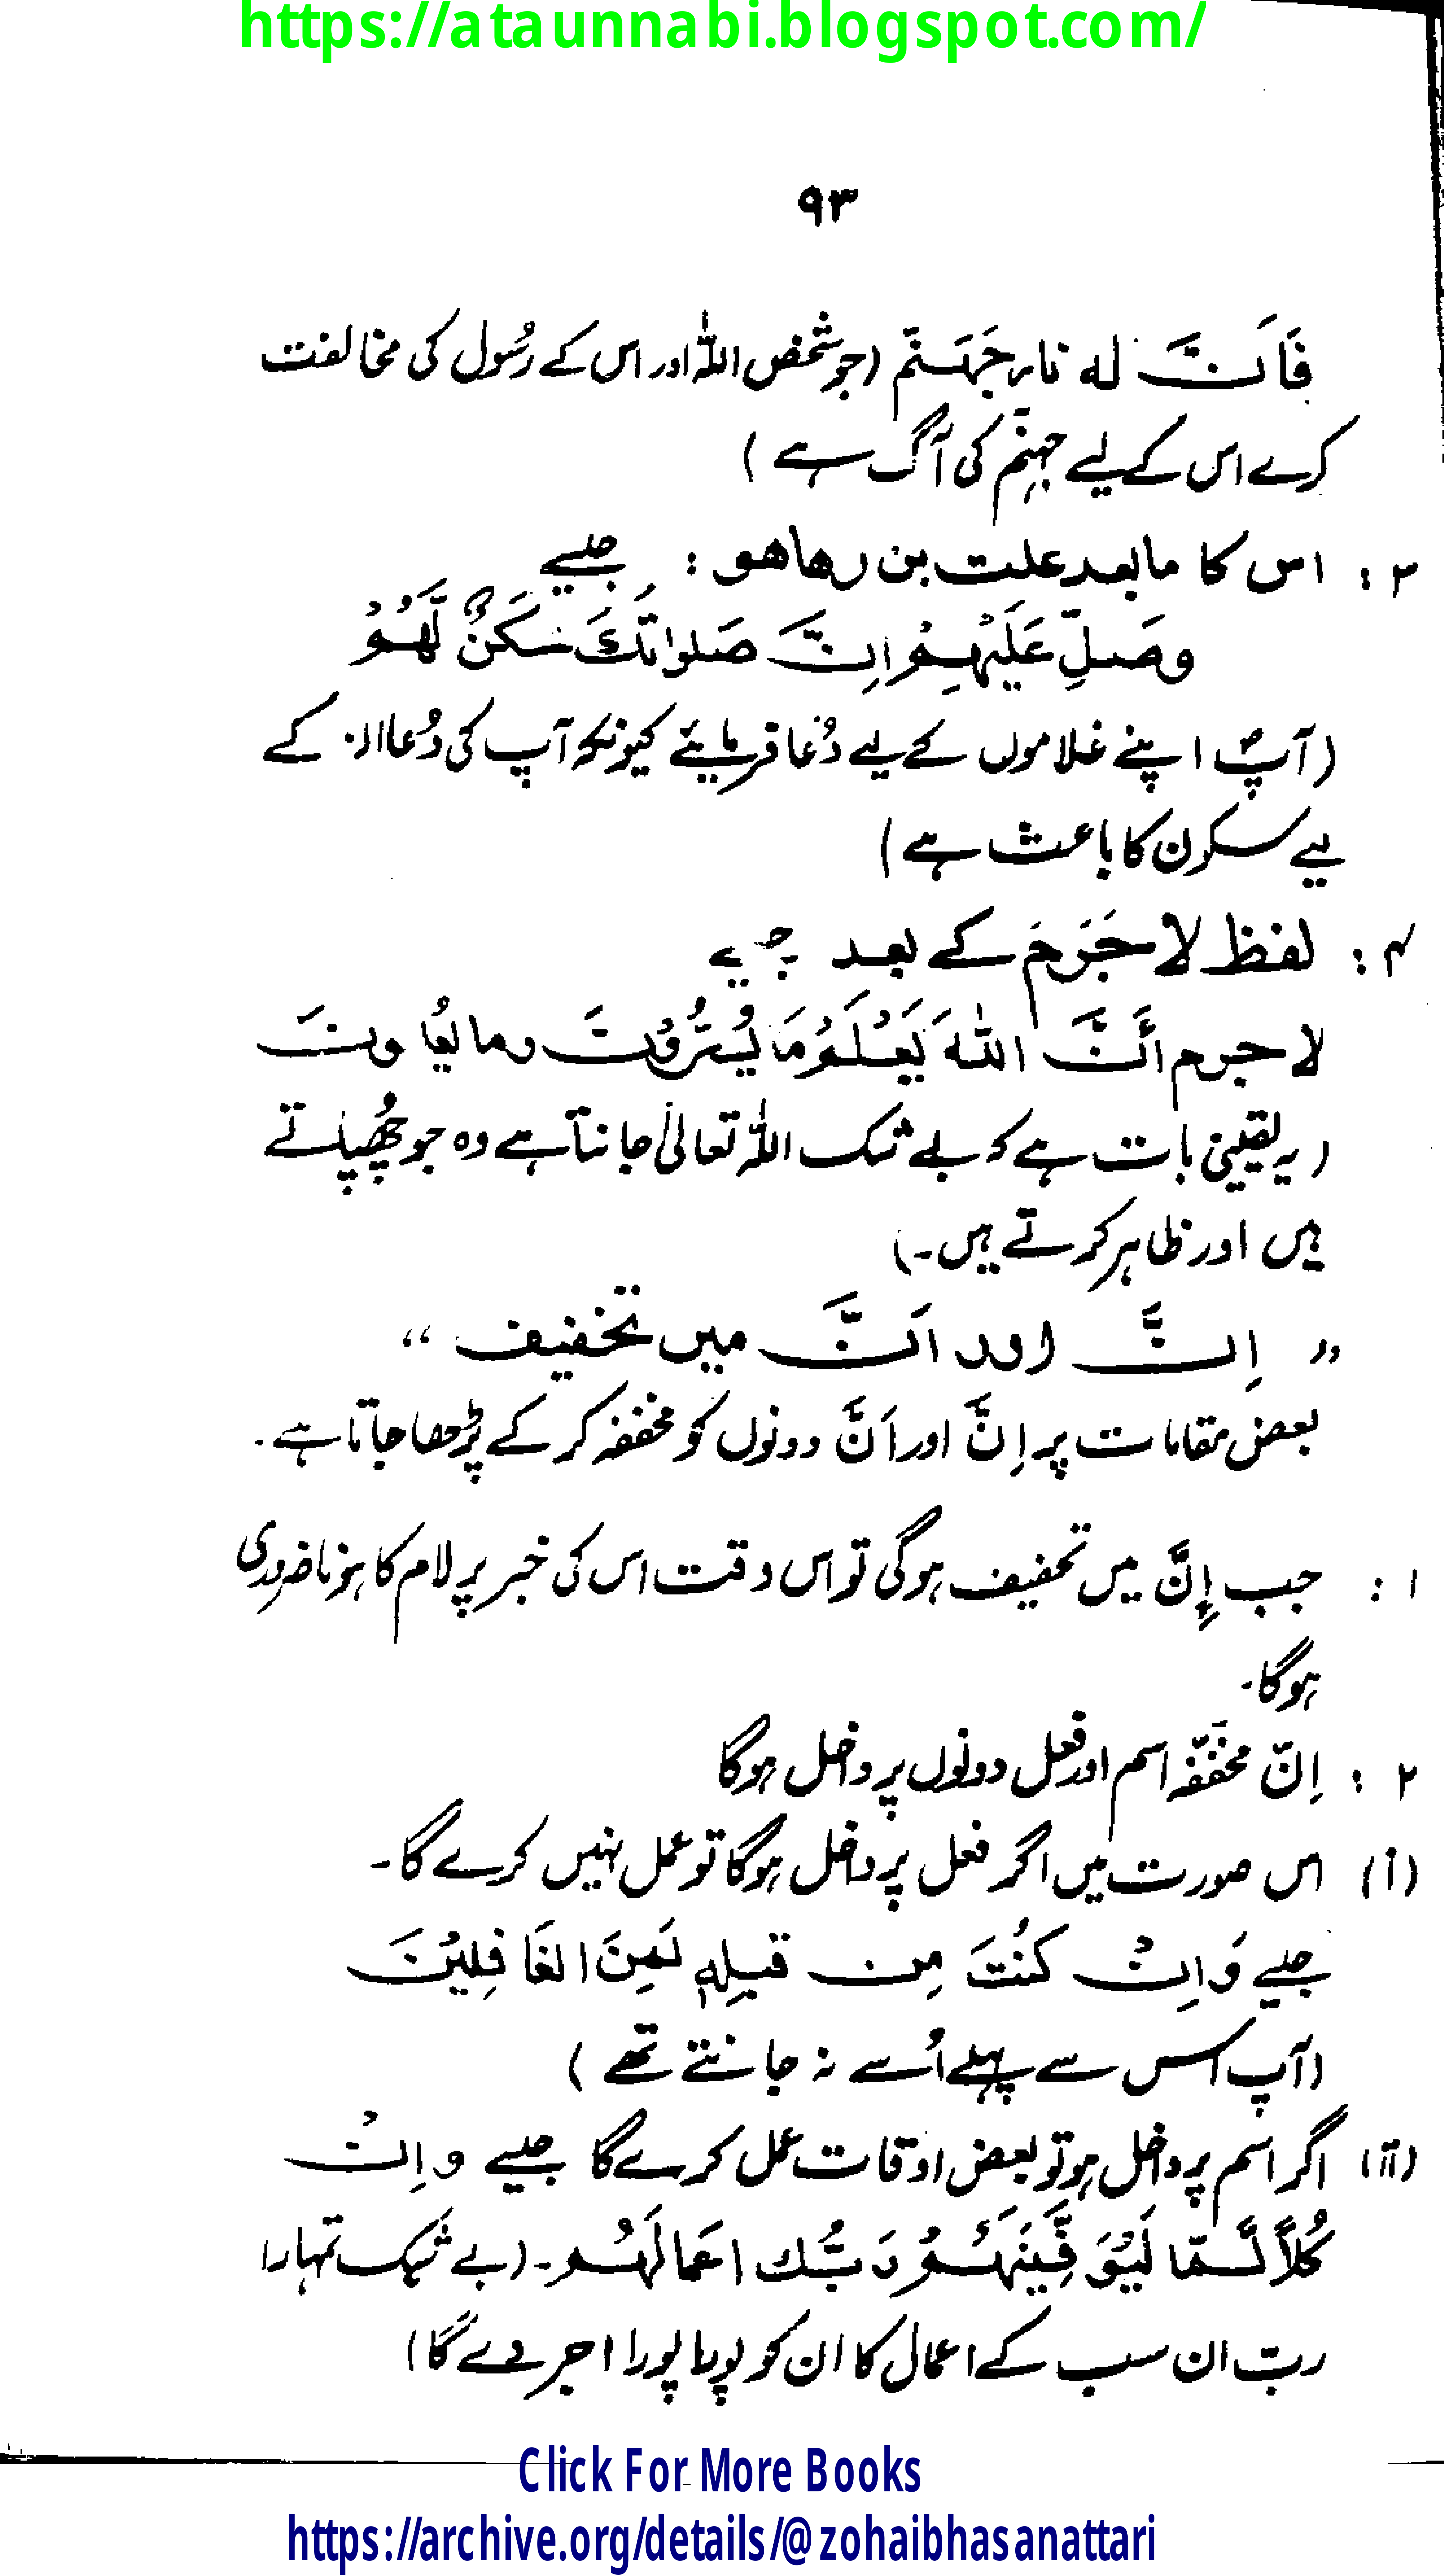 https://ataunnabi.blogspot.com/
۹۳
فَاَنَّ له نار جَهَنَّم (جو شخص اللہ اور اس کے رسُول کی مخالفت
کرے اس کے لیے جہنّم کی آگ ہے)
۳ : اس کا ما بعد علت بن رہا ہو : جیسے
وصَلِّ عَلَيْهِمْ اِنَّ صَلٰوتَكَ سَكَنٌ لَّهُمْ
(آپؐ اپنے غلاموں کے لیے دُعا فرمایئے کیونکہ آپ کی دُعا ان کے
لیے سکون کا باعث ہے)
۴ : لفظ لا جَرَمَ کے بعد جیسے
لا جرم أَنَّ اللّٰهَ يَعْلَمُ مَا يُسِرُّوْنَ وما يعُلنونَ
(یہ یقینی بات ہے کہ بے شک اللہ تعالیٰ جانتا ہے وہ جو چُھپاتے
ہیں اور ظاہر کرتے ہیں۔)
" اِنَّ اور اَنَّ میں تخفیف "
بعض مقامات پر اِنَّ اور اَنَّ دونوں کو مخففہ کر کے پڑھا جاتا ہے۔
۱ : جب إِنَّ میں تخفیف ہوگی تو اس وقت اس کی خبر پر لام کا ہونا ضروری
ہوگا۔
۲ : اِنّ مخفَّفہ اسم اور فعل دونوں پر داخل ہوگا
(أ) اس صورت میں اگر فعل پر داخل ہوگا تو عمل نہیں کرے گا۔
جیسے وَاِنْ كُنْتَ مِن قبلِهٖ لَمِنَ الغَافِلِيْنَ
(آپ اس سے پہلے اُسے نہ جانتے تھے)
(أأ) اگر اسم پر داخل ہو تو بعض اوقات عمل کرے گا جیسے واِنْ
كُلاًّ لَّمَّا لَيُوَفِّيَنَّهُمْ رَبُّك اعمالَهُم۔ (بے شک تمہارا
ربّ ان سب کے اعمال کا ان کو پورا پورا اجر دے گا)
Click For More Books
https://archive.org/details/@zohaibhasanattari